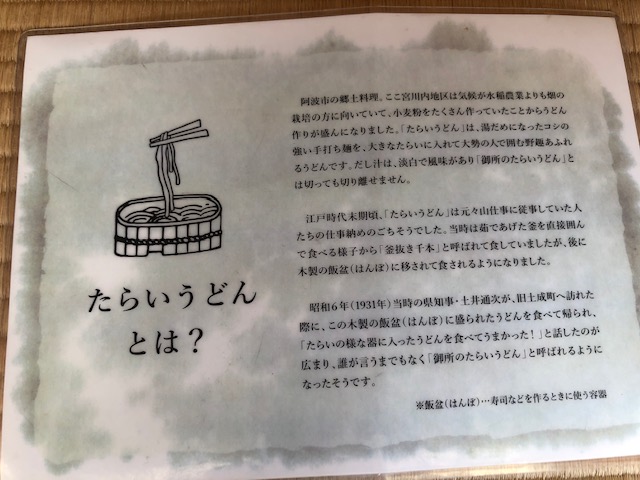 たらいうどん
とは？
阿波市の郷土料理。ここ宮川内地区は気候が水稲農業よりも畑の
栽培の方に向いていて、小麦粉をたくさん作っていたことからうどん
作りが盛んになりました。「たらいうどん」は、湯だめになったコシの
強い手打ち麺を、大きなたらいに入れて大勢の人で囲む野趣あふれ
るうどんです。だし汁は、淡白で風味があり「御所のたらいうどん」と
は切っても切り離せません。
江戸時代末期頃、「たらいうどん」は元々山仕事に従事していた人
たちの仕事納めのごちそうでした。当時は茹であげた釜を直接囲ん
で食べる様子から「釜抜き千本」と呼ばれて食していましたが、後に
木製の飯盆（はんぼ）に移されて食されるようになりました。
昭和6年（1931年）当時の県知事・土井通次が、旧土成町へ訪れた
際に、この木製の飯盆（はんぼ）に盛られたうどんを食べて帰られ、
「たらいの様な器に入ったうどんを食べてうまかった！」と話したのが
広まり、誰が言うまでもなく「御所のたらいうどん」と呼ばれるように
なったそうです。
※飯盆（はんぼ）…寿司などを作るときに使う容器